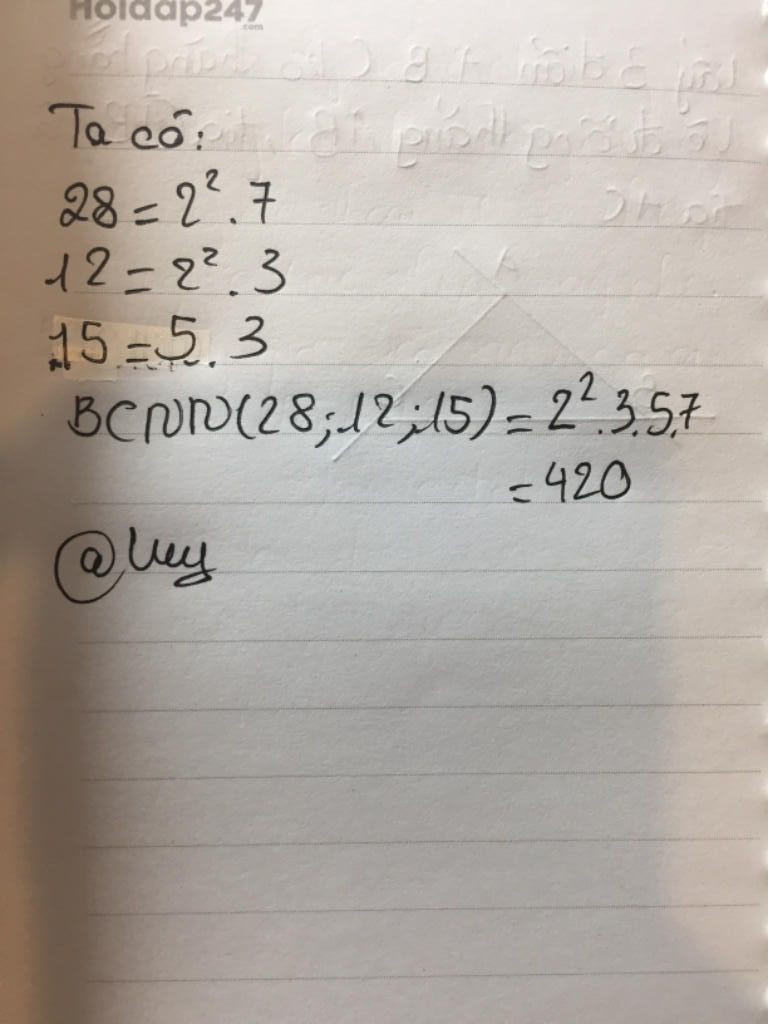 Hoidap247
.com
Ta có:
28 = 2² . 7
12 = 2² . 3
15 = 5 . 3
BCNN(28;12;15) = 2².3.5.7
= 420